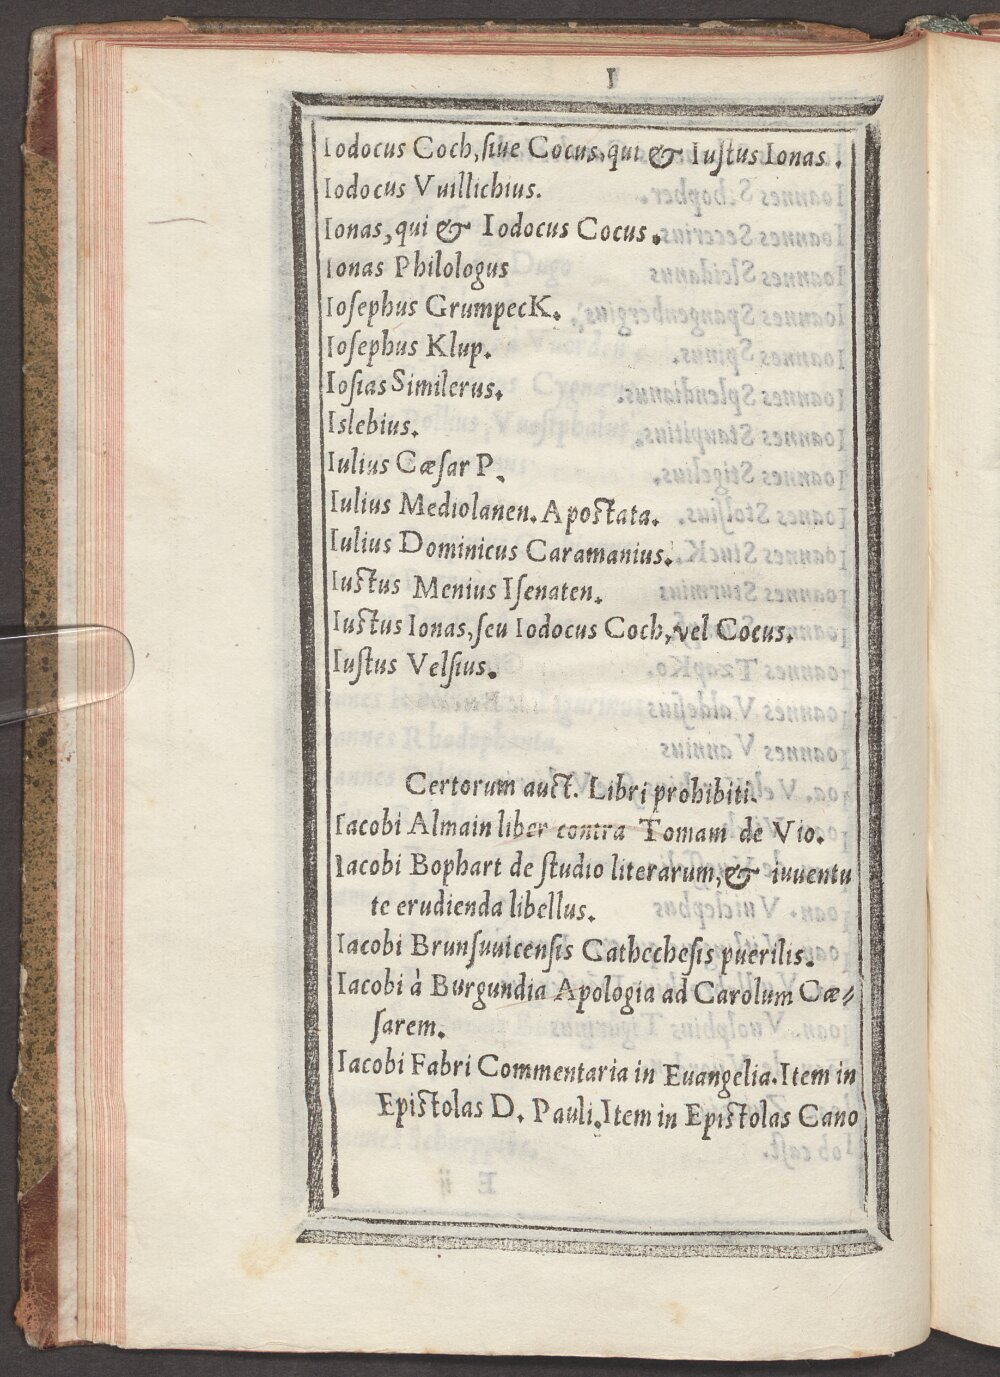 I
Iodocus Coch, siue Cocus, qui & Iustus Ionas.
Iodocus Vuillichius.
Ionas, qui & Iodocus Cocus.
Ionas Philologus
Iosephus GrumpecK.
Iosephus Klup.
Iosias Similerus.
Islebius.
Iulius Cæsar P.
Iulius Mediolanen. Apostata.
Iulius Dominicus Caramanius.
Iustus Menius Isenaten.
Iustus Ionas, seu Iodocus Coch, vel Cocus.
Iustus Velsius.
Certorum auct. Libri prohibiti.
Iacobi Almain liber contra Tomam de Vio.
Iacobi Bophart de studio literarum, & iuuentu
te erudienda libellus.
Iacobi Brunsuuicensis Cathechesis puerilis.
Iacobi à Burgundia Apologia ad Carolum Cæ⸗
sarem.
Iacobi Fabri Commentaria in Euangelia. Item in
Epistolas D. Pauli. Item in Epistolas Cano